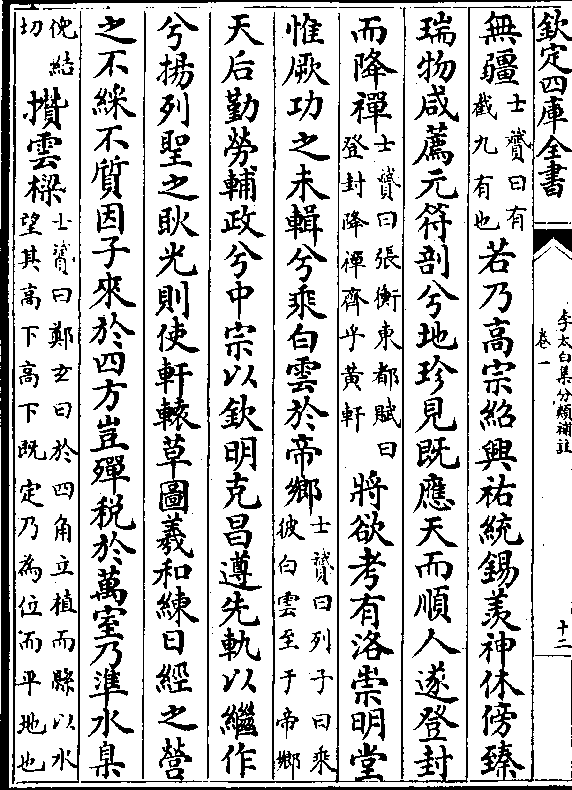 欽定四庫全書
李太白集分類補註
卷一
十二
無疆士贇曰有截九有也若乃高宗紹興祐統錫羨神休傍臻
瑞物咸薦元符剖兮地珍見既應天而順人遂登封
而降禪士贇曰張衡東都賦曰登封降禪齊乎黄軒將欲考有洛崇明堂
惟厥功之未輯兮乘白雲於帝鄉士贇曰列子曰乘彼白雲至于帝鄉
天后勤勞輔政兮中宗以欽明克昌遵先軌以繼作
兮揚列聖之耿光則使軒轅草圖羲和練日經之營
之不綵不質因子來於四方豈殫税於萬室乃準水臬
倪結切攅雲樑士贇曰鄭玄曰於四角立植而縣以水望其高下高下既定乃為位而平地也